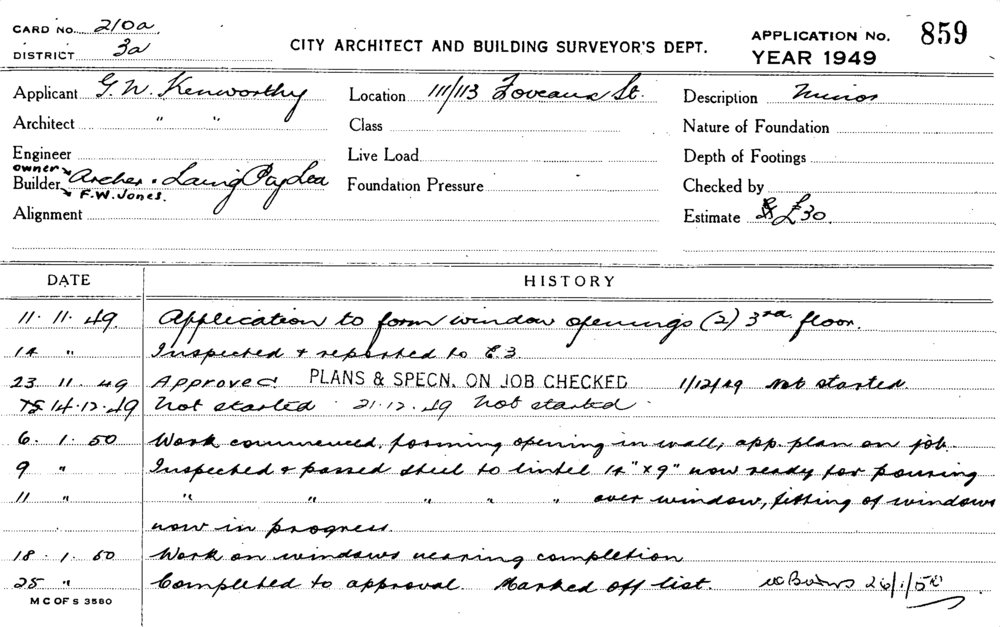 CARD NO. 210a
DISTRICT 3a
CITY ARCHITECT AND BUILDING SURVEYOR'S DEPT.
APPLICATION NO. 859
YEAR 1949
Applicant G. W. Kenworthy Location 111/113 Foveaux St. Description Minor
Architect " " Class Nature of Foundation
Engineer Live Load Depth of Footings
owner
Builder Archer Laing Pty Foundation Pressure Checked by
F.W. Jones.
Alignment Estimate £30.
DATE HISTORY
11. 11. 49. Application to form window openings (2) 3rd floor.
14 " Inspected & reported to C3
23 11. 49 Approved PLANS & SPECN. ON JOB CHECKED 1/12/49 Not started.
14.12.49 Not started 21.12.49 Not started
6. 1. 50 Work commenced, forming opening in wall, app. plan on job.
9 " Inspected & passed steel to lintel 14" x 9" now ready for pouring
11 " " " " " " over window, fitting of windows
now in progress.
18. 1. 50 Work on windows nearing completion
25 " Completed to approval. Marked off list. 26/1/50
M C OF S 3580